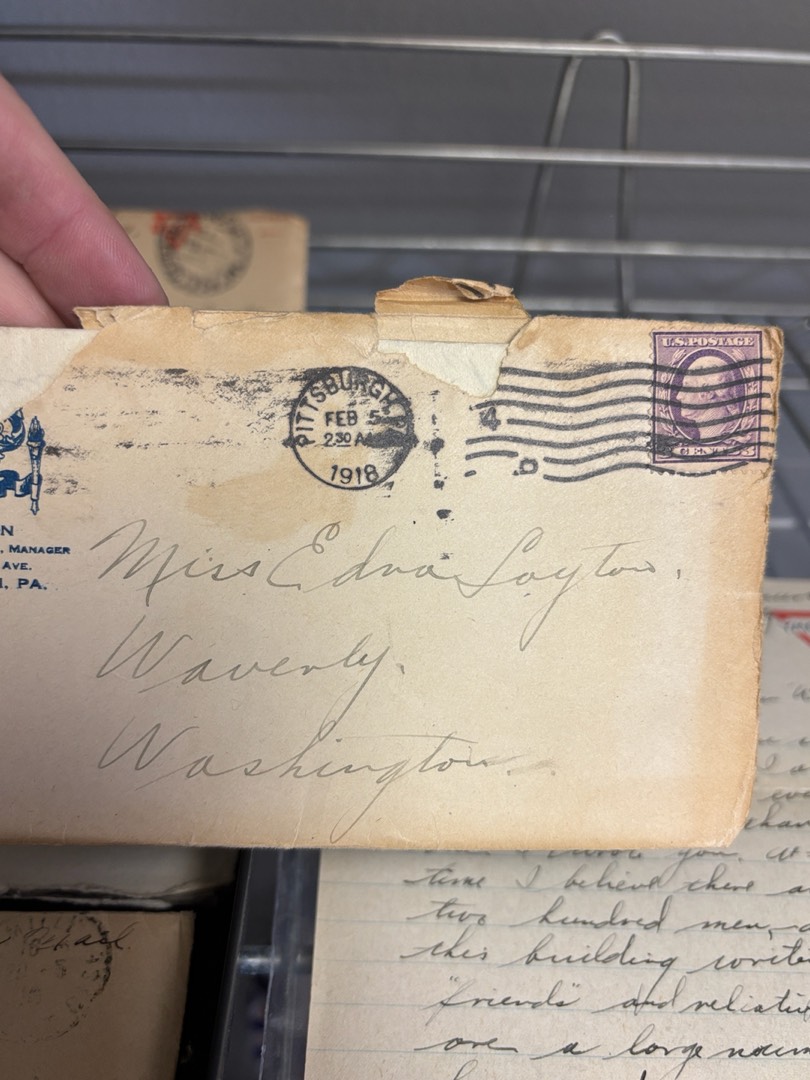 U.S.POSTAGE
PITTSBURGH, P
FEB 5
2:30 AM
1918
4
N
, MANAGER
AVE.
, PA.
Miss Edna Layton.
Waverly.
Washington.
you. at
time I believe there a
two hundred men,
this building writi
"friends" and relative
are a large num